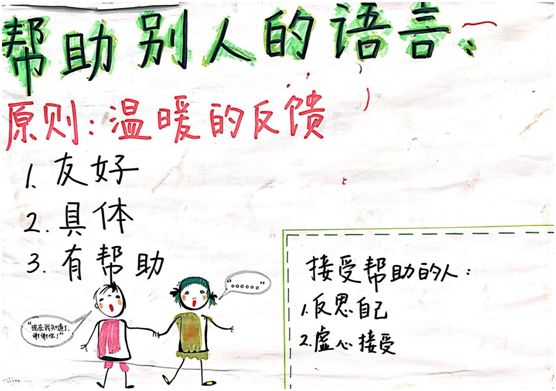 帮助别人的语言
原则：温暖的反馈
1.友好
2.具体
3.有帮助
"现在我知道了，
谢谢你！"
"……"
接受帮助的人：
1.反思自己
2.虚心接受